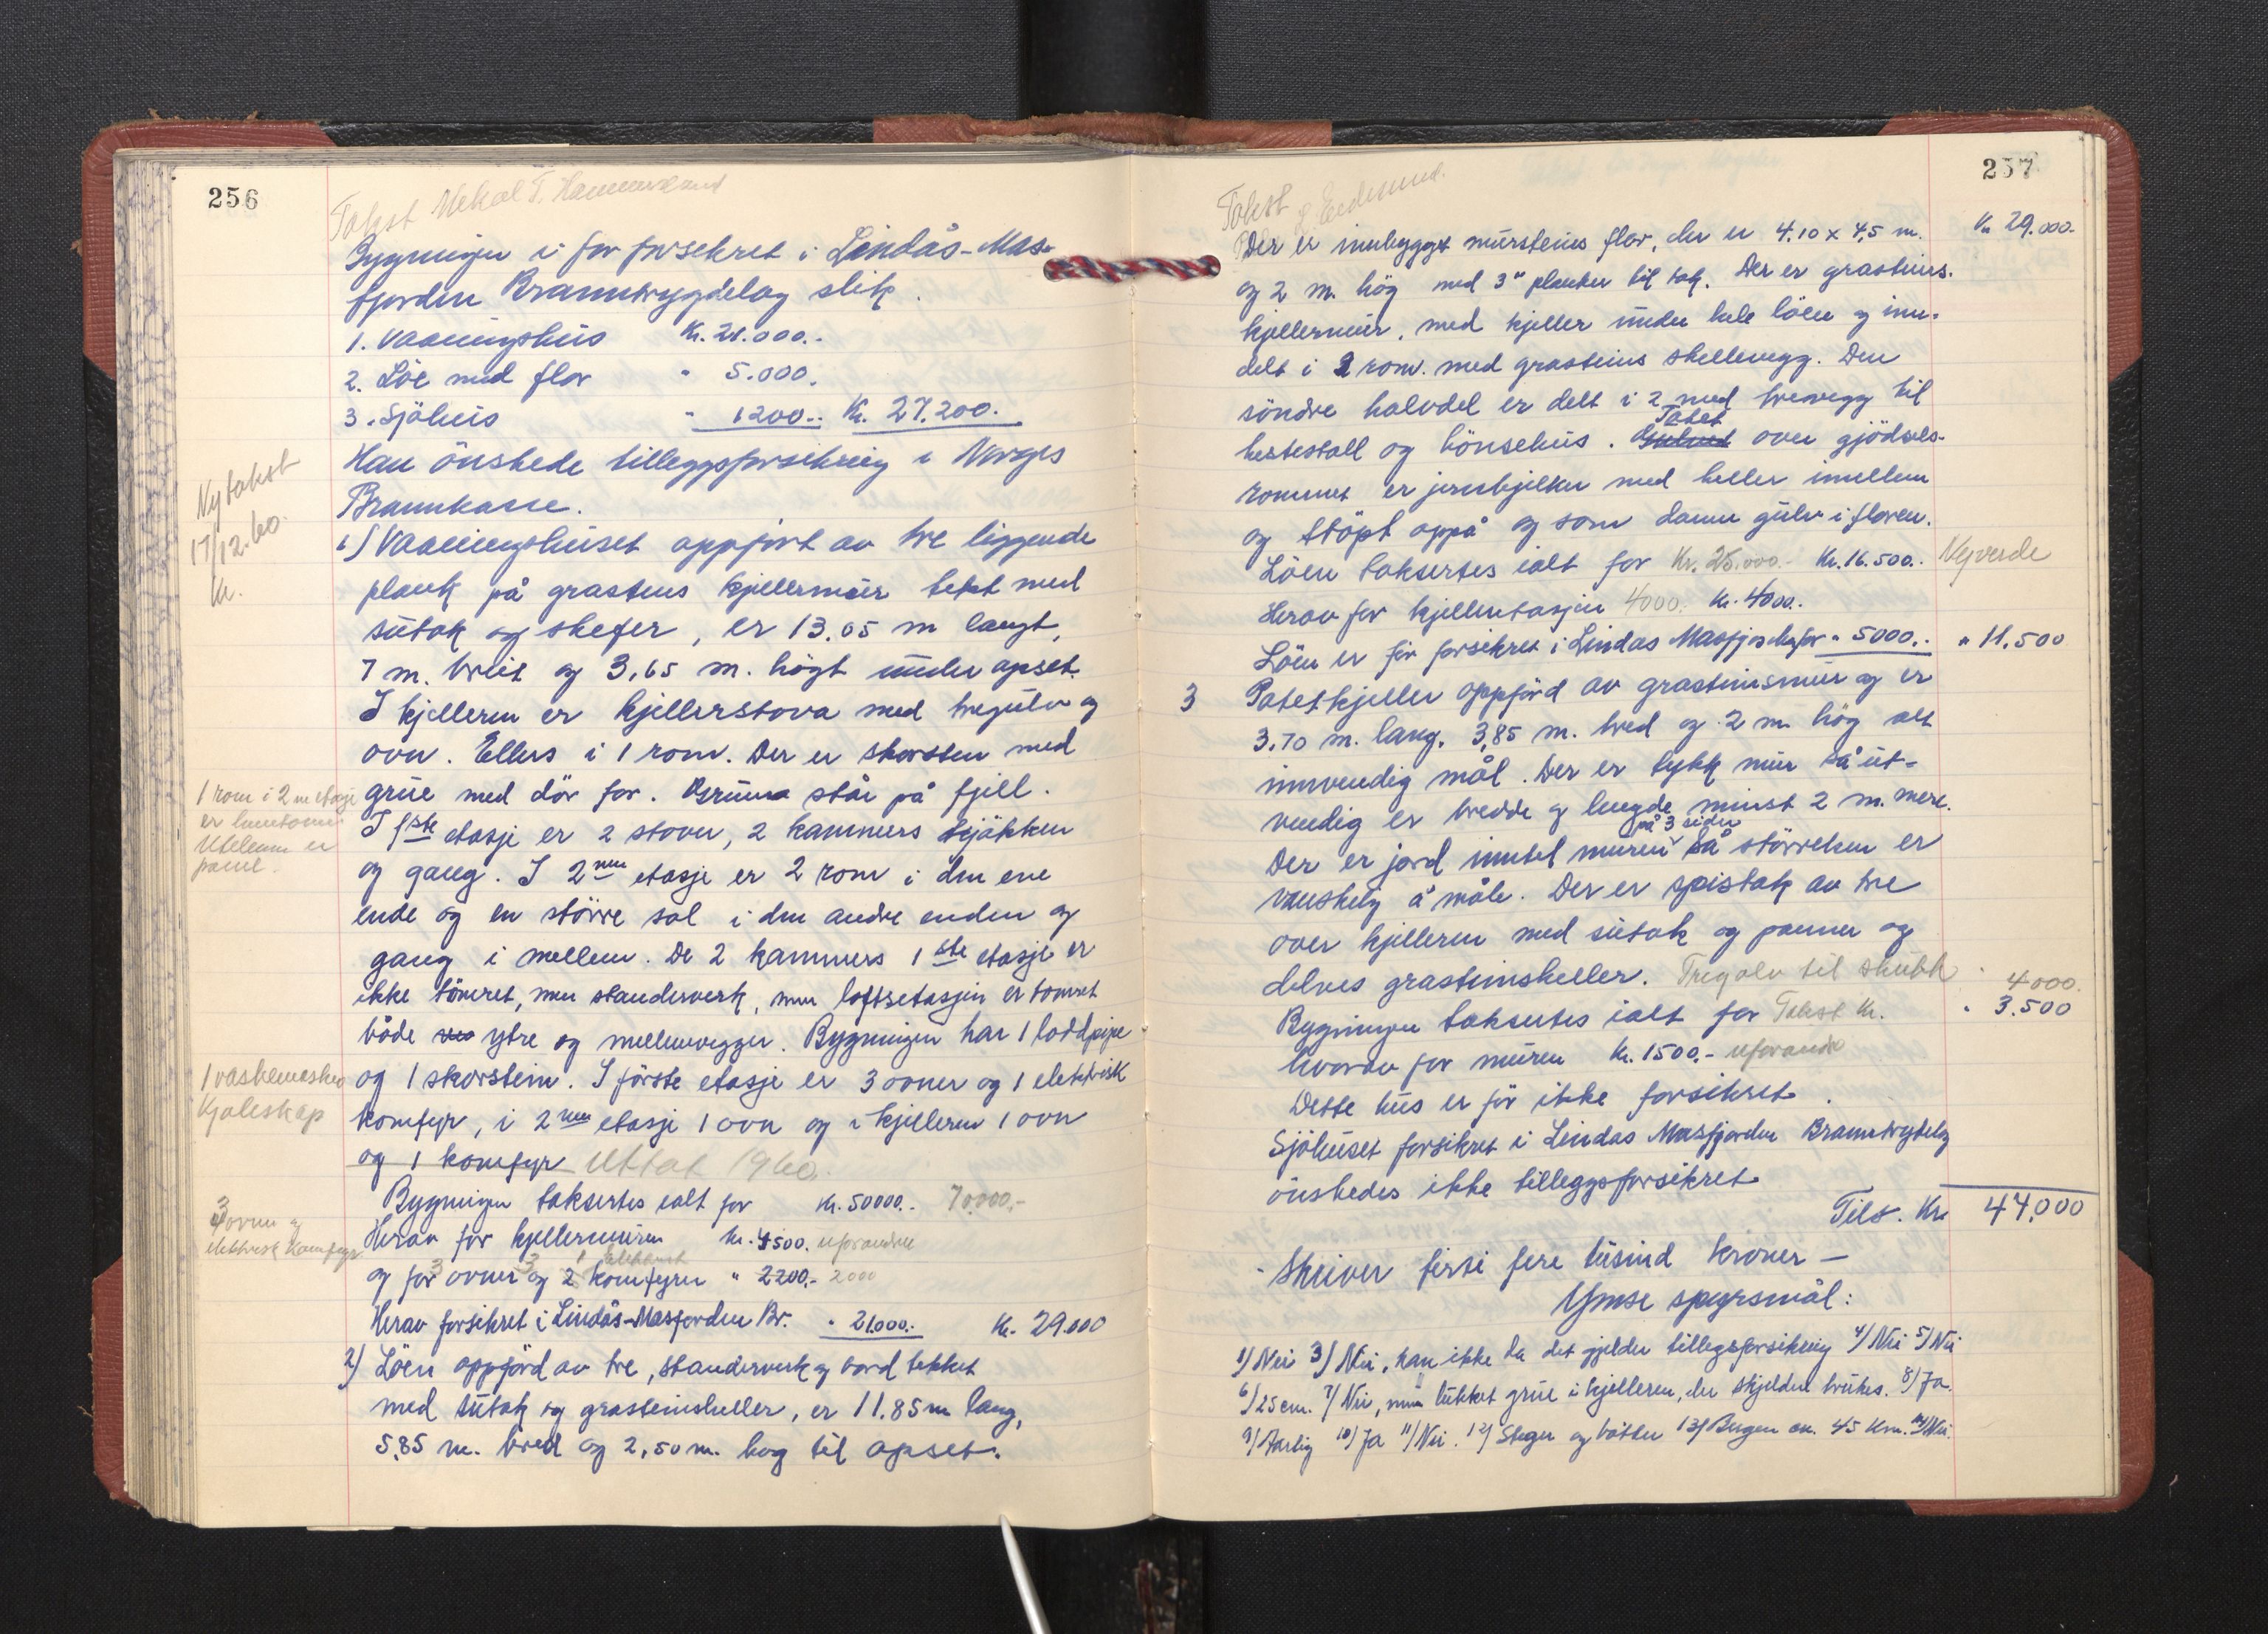 256
Takst Mekal T. Hammersland
Bygningen i før forsekret i Lindås-Mas-
fjorden Branntrygdelag slik.
1. Vaaningshus Kr. 21.000.-
2. Löe med flor " 5.000.
3. Sjöhus " 1200.- Kr. 27.200.
Han önskede tilleggsforsikring i Norges
Brannkasse.
Nytakst
17/12.60.
Kr.
1) Vaaningshuset oppfört av tre liggende
plank på grasteins kjellermür tekt med
sutak og skefer, er 13.05 m langt,
7 m. breit og 3,65 m. högt under opset.
I kjelleren er kjellerstova med tregulv og
ovn. Ellers i 1 rom. Der er skorsten med
grüe med dör for. Grüna står på fjell.
1 rom i 2 m etasje
er
Utelem er
panel.
I 1ste etasje er 2 stover, 2 kammers kjökken
og gang. I 2nen etasje er 2 rom i den ene
ende og en större sal i den andre enden og
gang i mellem. De 2 kammers 1ste etasje er
ikke tömret, men standerverk, men loftsetasjen er tomret
både ytre og mellemvegger. Bygningen har 1 loddpipe
og 1 skorstein. I förste etasje er 3 ovner og 1 elektrisk
1 vaskemaskin
Kjøleskap
komfyr, i 2nen etasje 1 ovn og i kjelleren 1 ovn
og 1 komfyr Uttat 1960.
Bygningen taksertes ialt for Kr. 50000.- 70.000,-
3 ovnn og
elektrisk Komfyr.
Herav for kjellermüren Kr. 4500. uforandre
og for 3 ovner og 2 komfyrer " 2200.- 2000
3 1 elektrisk
Herav forsikret i Lindås-Masfjorden Br. " 21000.- Kr. 29.000
2) Löen oppförd av tre, standerverk og bord tekket
med sutak og grasteinsheller, er 11.85 m lang,
5,85 m. bred og 2,50 m. hog til opset.
257
Takst
Der er innbygget mürsteins flor, der er 4.10 x 4,5 m. Kr 29.000.-
og 2 m. hög med 3" planker til tak. Der er grasteins-
kjellermür, med kjeller under hele löen og inn-
delt i 2 rom. med grasteins skellevegg. Den
söndre halvdel er delt i 2 med trevegg til
hestestall og hönsehüs. Taket over gjödsels-
rommet er jernbjelker med heller imellem
og støpt oppå og som danne gulv i floren.
Löen taksertes ialt for Kr. 25.000.- Kr. 16.500.- Nyverde
Herav for kjelleretasjen 4000. Kr. 4000.
Löen er för forsikret i Lindas Masfjorden for " 5000.- " 11.500
3 Potetkjeller oppförd av grasteinsmür og er
3.70 m. lang. 3,85 m. bred og 2 m. hög alt
innvendig mål. Der er tykk mür så üt-
vendig er bredde og lengde minst 2 m. mere.
Der er jord inntil muren på 3 sider så störrelsen er
vanskelig å måle. Der er spistak av tre
over kjelleren med sütak og panner og
delves grasteinsheller. Tregolv til skübb
4000.
Bygningen taksertes ialt for Takst Kr. " 3.500
hvorav for müren Kr. 1500.- uforandre
Dette hüs er för ikke forsikret.
Sjöhüset forsikret i Lindas Masfjorden Branntrydelag
önskedes ikke tilleggsforsikret
Tils. Kr. 44.000
- Skriver firti fere tüsind kroner -
Ymse spyrsmål:
1) Nei 3) Nei, kan ikke da det gjelder tilleggsforsikring 4) Nei 5) Nei
6) 25 cm. 7) Nei, men lukket grüe i kjelleren, der skjelden brukes. 8) Ja.
9) Aarlig 10) Ja 11) Nei. 12) Steger og bötter 13) Bergen ca. 45 Km. 14) Nei.